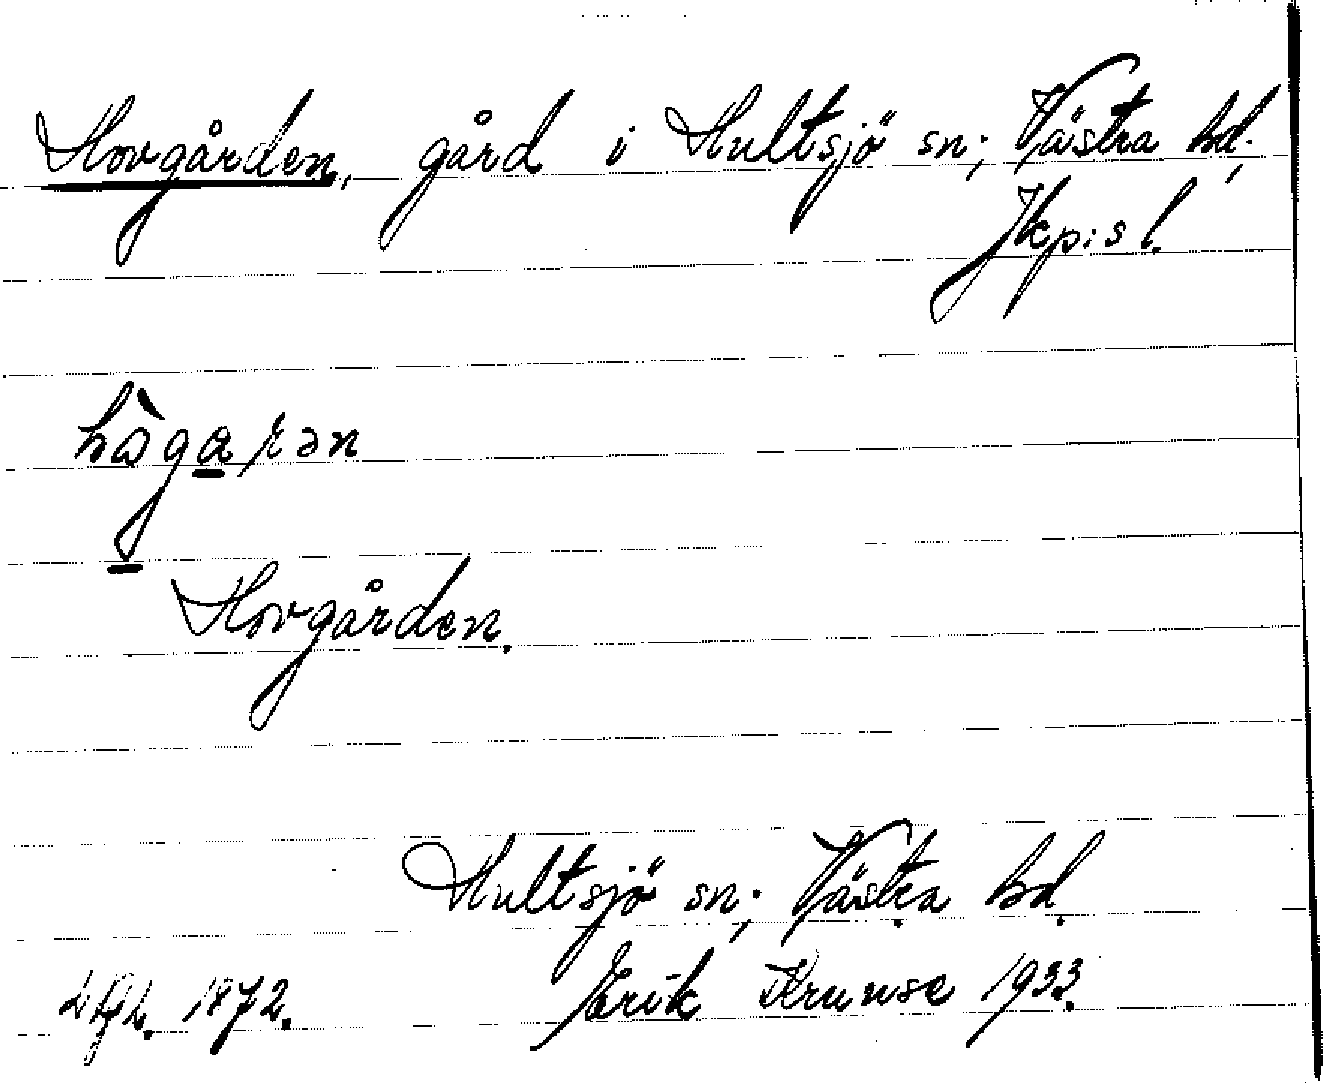 Hovgården, gård i Hultsjö sn; Västra hd.,
Jkp:s l.
hògarən
Hovgården.
Hultsjö sn; Västra hd.
1872. Erik Krunse 1933.